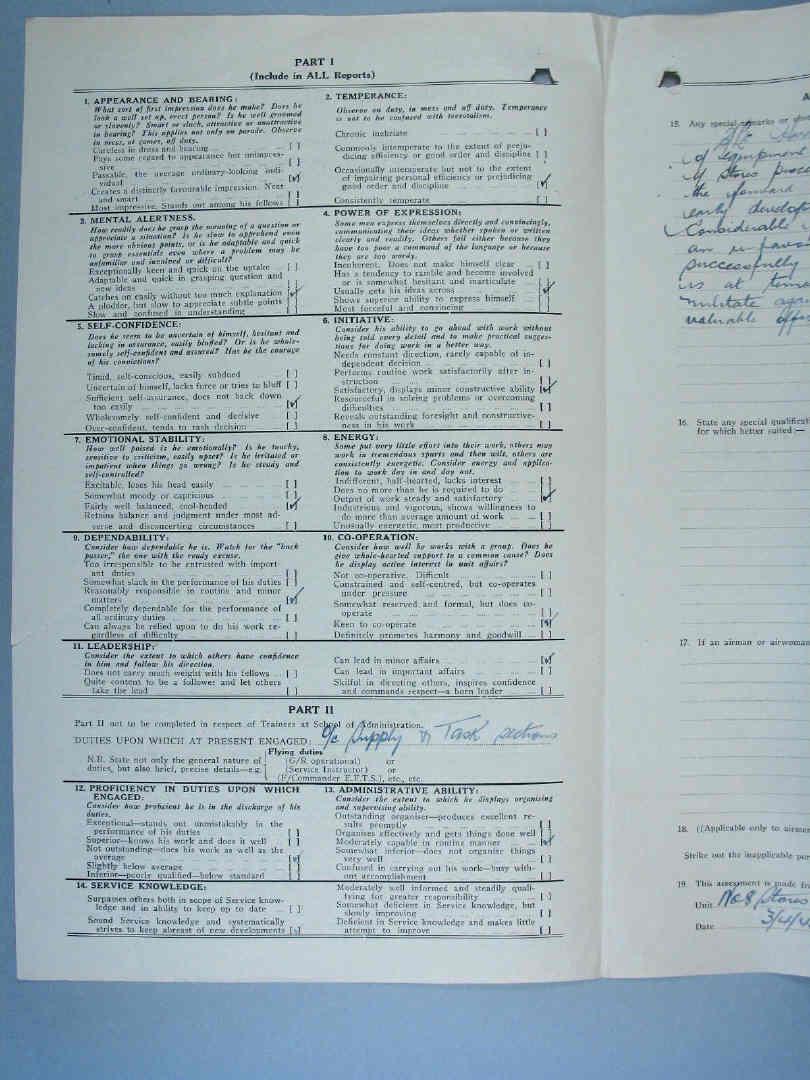 PART I
(Include in ALL Reports)
1. APPEARANCE AND BEARING:
What sort of first impression does he make? Does he
look a well set up, erect person? Is he well groomed
or slovenly? Smart or slack, attractive or unattractive
in bearing? This applies not only on parade. Observe
in mess, at games, off duty.
Careless in dress and bearing [ ]
Pays some regard to appearance but unimpres-
sive [ ]
Passable, the average ordinary-looking indi-
vidual [✓]
Creates a distinctly favourable impression. Neat
and smart [ ]
Most impressive. Stands out among his fellows [ ]
2. TEMPERANCE:
Observe on duty, in mess and off duty. Temperance
is not to be confused with teetotalism.
Chronic inebriate [ ]
Commonly intemperate to the extent of preju-
dicing efficiency or good order and discipline [ ]
Occasionally intemperate but not to the extent
of impairing personal efficiency or prejudicing
good order and discipline [✓]
Consistently temperate [ ]
3. MENTAL ALERTNESS.
How readily does he grasp the meaning of a question or
appreciate a situation? Is he slow to apprehend even
the more obvious points, or is he adaptable and quick
to grasp essentials even where a problem may be
unfamiliar and involved or difficult?
Exceptionally keen and quick on the uptake [ ]
Adaptable and quick in grasping question and
new ideas [ ]
Catches on easily without too much explanation [✓]
A plodder, but slow to appreciate subtle points [ ]
Slow and confined in understanding [ ]
4. POWER OF EXPRESSION:
Some men express themselves directly and convincingly,
communicating their ideas whether spoken or written
clearly and readily. Others fail either because they
have too poor a command of the language or because
they are too wordy.
Incoherent. Does not make himself clear [ ]
Has a tendency to ramble and become involved
or is somewhat hesitant and inarticulate [ ]
Usually gets his ideas across [✓]
Shows superior ability to express himself [ ]
Most forceful and convincing [ ]
5. SELF-CONFIDENCE:
Does he seem to be uncertain of himself, hesitant and
lacking in assurance, easily bluffed? Or is he whole-
somely self-confident and assured? Has he the courage
of his convictions?
Timid, self-conscious, easily subdued [ ]
Uncertain of himself, lacks force or tries to bluff [ ]
Sufficient self-assurance, does not back down
too easily [✓]
Wholesomely self-confident and decisive [ ]
Over-confident, tends to rash decision [ ]
6. INITIATIVE:
Consider his ability to go ahead with work without
being told every detail and to make practical sugges-
tions for doing work in a better way.
Needs constant direction, rarely capable of in-
dependent decision [ ]
Performs routine work satisfactorily after in-
struction [ ]
Satisfactory, displays minor constructive ability [✓]
Resourceful in solving problems or overcoming
difficulties [ ]
Reveals outstanding foresight and constructive-
ness in his work [ ]
7. EMOTIONAL STABILITY:
How well poised is he emotionally? Is he touchy,
sensitive to criticism, easily upset? Is he irritated or
impatient when things go wrong? Is he steady and
self-controlled?
Excitable, loses his head easily [ ]
Somewhat moody or capricious [ ]
Fairly well balanced, cool-headed [✓]
Retains balance and judgment under most ad-
verse and disconcerting circumstances [ ]
8. ENERGY:
Some put very little effort into their work, others may
work in tremendous spurts and then wilt, others are
consistently energetic. Consider energy and applica-
tion to work day in and day out.
Indifferent, half-hearted, lacks interest [ ]
Does no more than he is required to do [ ]
Output of work steady and satisfactory [✓]
Industrious and vigorous, shows willingness to
do more than average amount of work [ ]
Unusually energetic, most productive [ ]
9. DEPENDABILITY:
Consider how dependable he is. Watch for the "buck
passer," the one with the ready excuse.
Too irresponsible to be entrusted with import
ant duties [ ]
Somewhat slack in the performance of his duties [ ]
Reasonably responsible in routine and minor
matters [✓]
Completely dependable for the performance of
all ordinary duties [ ]
Can always be relied upon to do his work re-
gardless of difficulty [ ]
10. CO-OPERATION:
Consider how well he works with a group. Does he
give whole-hearted support to a common cause? Does
he display active interest in unit affairs?
Not co-operative. Difficult [ ]
Constrained and self-centred, but co-operates
under pressure [ ]
Somewhat reserved and formal, but does co-
operate [ ]
Keen to co-operate [✓]
Definitely promotes harmony and goodwill [ ]
11. LEADERSHIP:
Consider the extent to which others have confidence
in him and follow his direction.
Does not carry much weight with his fellows [ ]
Quite content to be a follower and let others
take the lead [ ]
Can lead in minor affairs [✓]
Can lead in important affairs [ ]
Skilful in directing others, inspires confidence
and commands respect—a born leader [ ]
PART II
Part II not to be completed in respect of Trainees at School of Administration.
DUTIES UPON WHICH AT PRESENT ENGAGED: O/c Supply & Task sections
N.B. State not only the general nature of
duties, but also brief, precise details—e.g.
Flying duties
(G/R operational) or
(Service Instructor) or
(F/Commander E.F.T.S.), etc., etc.
12. PROFICIENCY IN DUTIES UPON WHICH
ENGAGED:
Consider how proficient he is in the discharge of his
duties.
Exceptional—stands out unmistakably in the
performance of his duties [ ]
Superior—knows his work and does it well [ ]
Not outstanding—does his work as well as the
average [✓]
Slightly below average [ ]
Inferior—poorly qualified—below standard [ ]
13. ADMINISTRATIVE ABILITY:
Consider the extent to which he displays organising
and supervising ability.
Outstanding organiser—produces excellent re-
sults promptly [ ]
Organises effectively and gets things done well [ ]
Moderately capable in routine manner [✓]
Somewhat inferior—does not organise things
very well [ ]
Confused in carrying out his work—busy with-
out accomplishment [ ]
14. SERVICE KNOWLEDGE:
Surpasses others both in scope of Service know-
ledge and in ability to keep up to date [ ]
Sound Service knowledge and systematically
strives to keep abreast of new developments [✓]
Moderately well informed and steadily quali-
fying for greater responsibility [ ]
Somewhat deficient in Service knowledge, but
slowly improving [ ]
Deficient in Service knowledge and makes little
attempt to improve [ ]
15. Any special remarks or
of equipment
of Stores
the standard
early
Considerable
an
successfully
is at
militate
valuable
16. State any special
for which better suited:—
17. If an airman or
18. ((Applicable only to
Strike out the inapplicable
19. This assessment is made
Unit No 8 Stores
Date